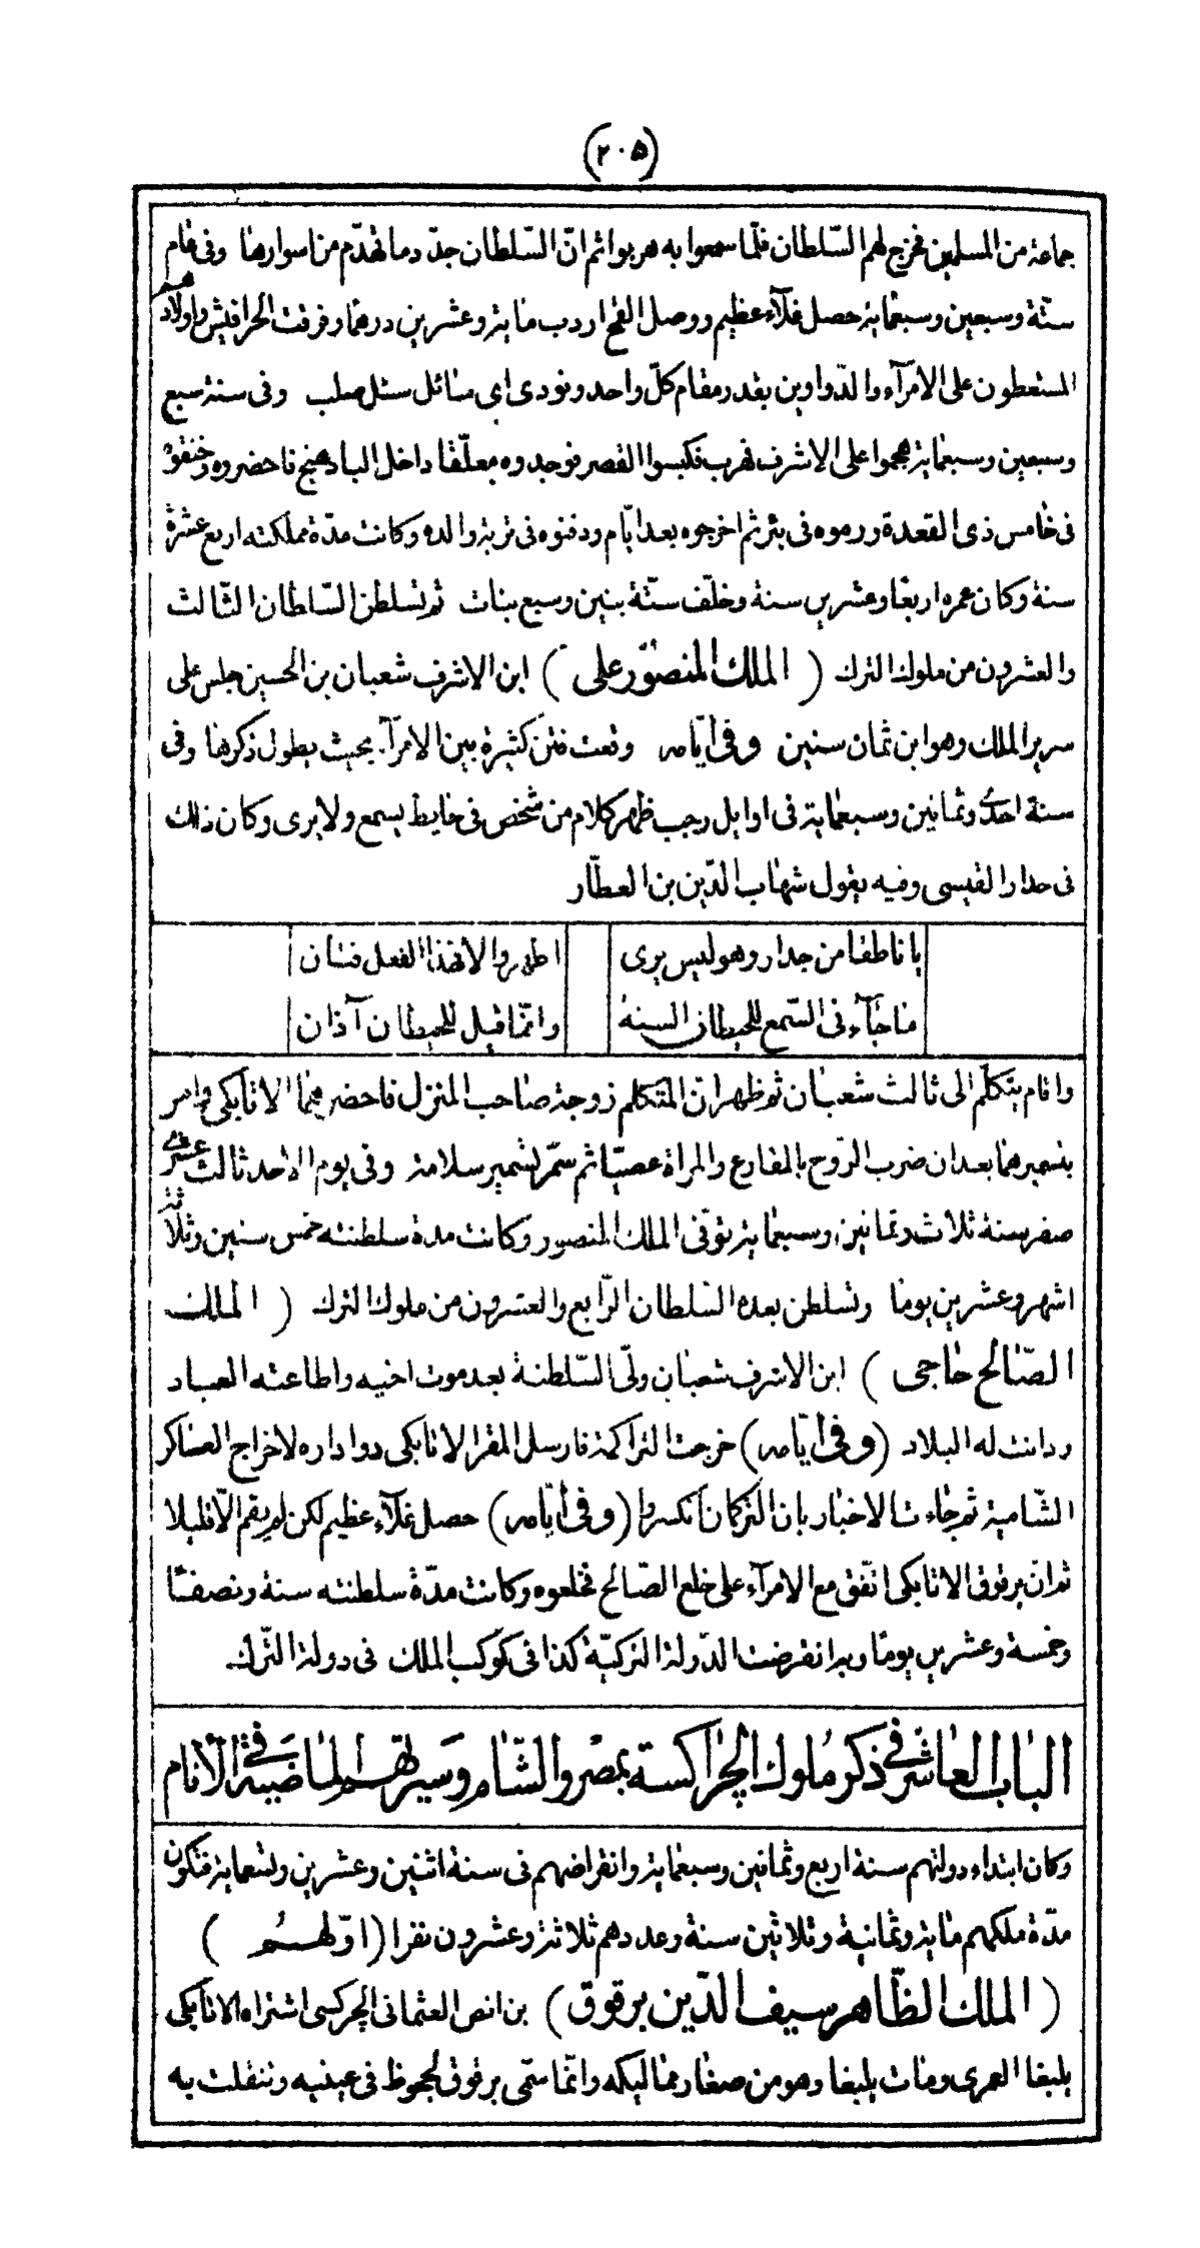 (٢٠٥)
جماعة من المسلمين فخرج لهم السّلطان فلمّا سمعوا به هربوا ثم انّ السّلطان جدّد ما تهدّم من اسوارها وفى عام
ستّة وسبعين وسبعماية حصل غلآء عظيم ووصل القمح اردب مائة وعشرين درهما وفرقت الحرافيش واولادهم
المستعطون على الامرآء والدّواوين بقدر مقام كلّ واحد ونودى اى سائل سئل صلب وفى سنة سبع
وسبعين وسبعماية هجموا على الاشرف فهرب فكبسوا القصر فوجدوه معلّقا داخل البادهنج فاحضروه وخنقوه
فى خامس ذى القعدة ورموه فى بئر ثم اخرجوه بعد ايّام ودفنوه فى تربة والده وكانت مدّة مملكته اربع عشرة
سنة وكان عمره اربعًا وعشرين سنة وخلّف ستّة بنين وسبع بنات ثم تسلطن السّلطان الثّالث
والعشرون من ملوك الترك ( الملك المنصور على ) ابن الاشرف شعبان بن الحسين جلس على
سرير الملك وهو ابن ثمان سنين وفى ايّامه وقعت فتن كثيرة بين الامرآء بحيث يطول ذكرها وفى
سنة احدى وثمانين وسبعماية فى اوايل رجب ظهر كلام من شخص فى حايط يسمع ولا يرى وكان ذلك
فى جدار القيسى وفيه يقول شهاب الدّين بن العطّار
يا ناطقا من جدار وهو ليس يرى اظهر والا فهذا الفعل فتان
ما جآء فى السّمع للحيطان السنة وانّما قيل للحيطان آذان
واقام يتكلّم الى ثالث شعبان ثم ظهر ان المتكلم زوجة صاحب المنزل فاحضرهما الاتابكى وامر
بتسميرهما بعد ان ضرب الزّوج بالمقارع والمراة عصيّا ثم سمّر تسمير سلامة وفى يوم الاحد ثالث عشرى
صفر سنة ثلاث وثمانين وسبعماية توفّى الملك المنصور وكانت مدة سلطنته خمس سنين وثلاثة
اشهر وعشرين يومًا وتسلطن بعده السّلطان الرّابع والعشرون من ملوك الترك ( الملك
الصّالح حاجى ) ابن الاشرف شعبان ولّى السّلطنة بعد موت اخيه واطاعته العباد
ودانت له البلاد (وفى ايّامه) خرجت التراكمة فارسل المقر الاتابكى دواداره لاخراج العساكر
الشّامية ثم جاءت الاخبار بان التركمان انكسروا (وفى ايّامه) حصل غلآء عظيم لكن لم يقم الّا قليلا
ثم انّ برقوق الاتابكى اتّفق مع الامرآء على خلع الصّالح فخلعوه وكانت مدّة سلطنته سنة ونصفًا
وخمسة وعشرين يومًا وبه انقرضت الدّولة التركيّة كذا فى كوكب الملك فى دولة التّرك
الباب العاشر فى ذكر ملوك الجراكسة بمصر والشّام وسيرتهم الماضية فى الأنام
وكان ابتداء دولتهم سنة اربع وثمانين وسبعماية وانقراضهم فى سنة اثنين وعشرين وتسعماية فتكون
مدّة ملكهم مائة وثمانية وثلاثين سنة وعددهم ثلاثة وعشرون نفرا (اوّلهم )
( الملك الظّاهر سيف الدّين برقوق ) بن انص العثمانى الجركسى اشتراه الاتابكى
يلبغا العمرى ومات يلبغا وهو من صغار مماليكه وانّما سمّى برقوق لجحوظ فى عينيه وتنقلت به